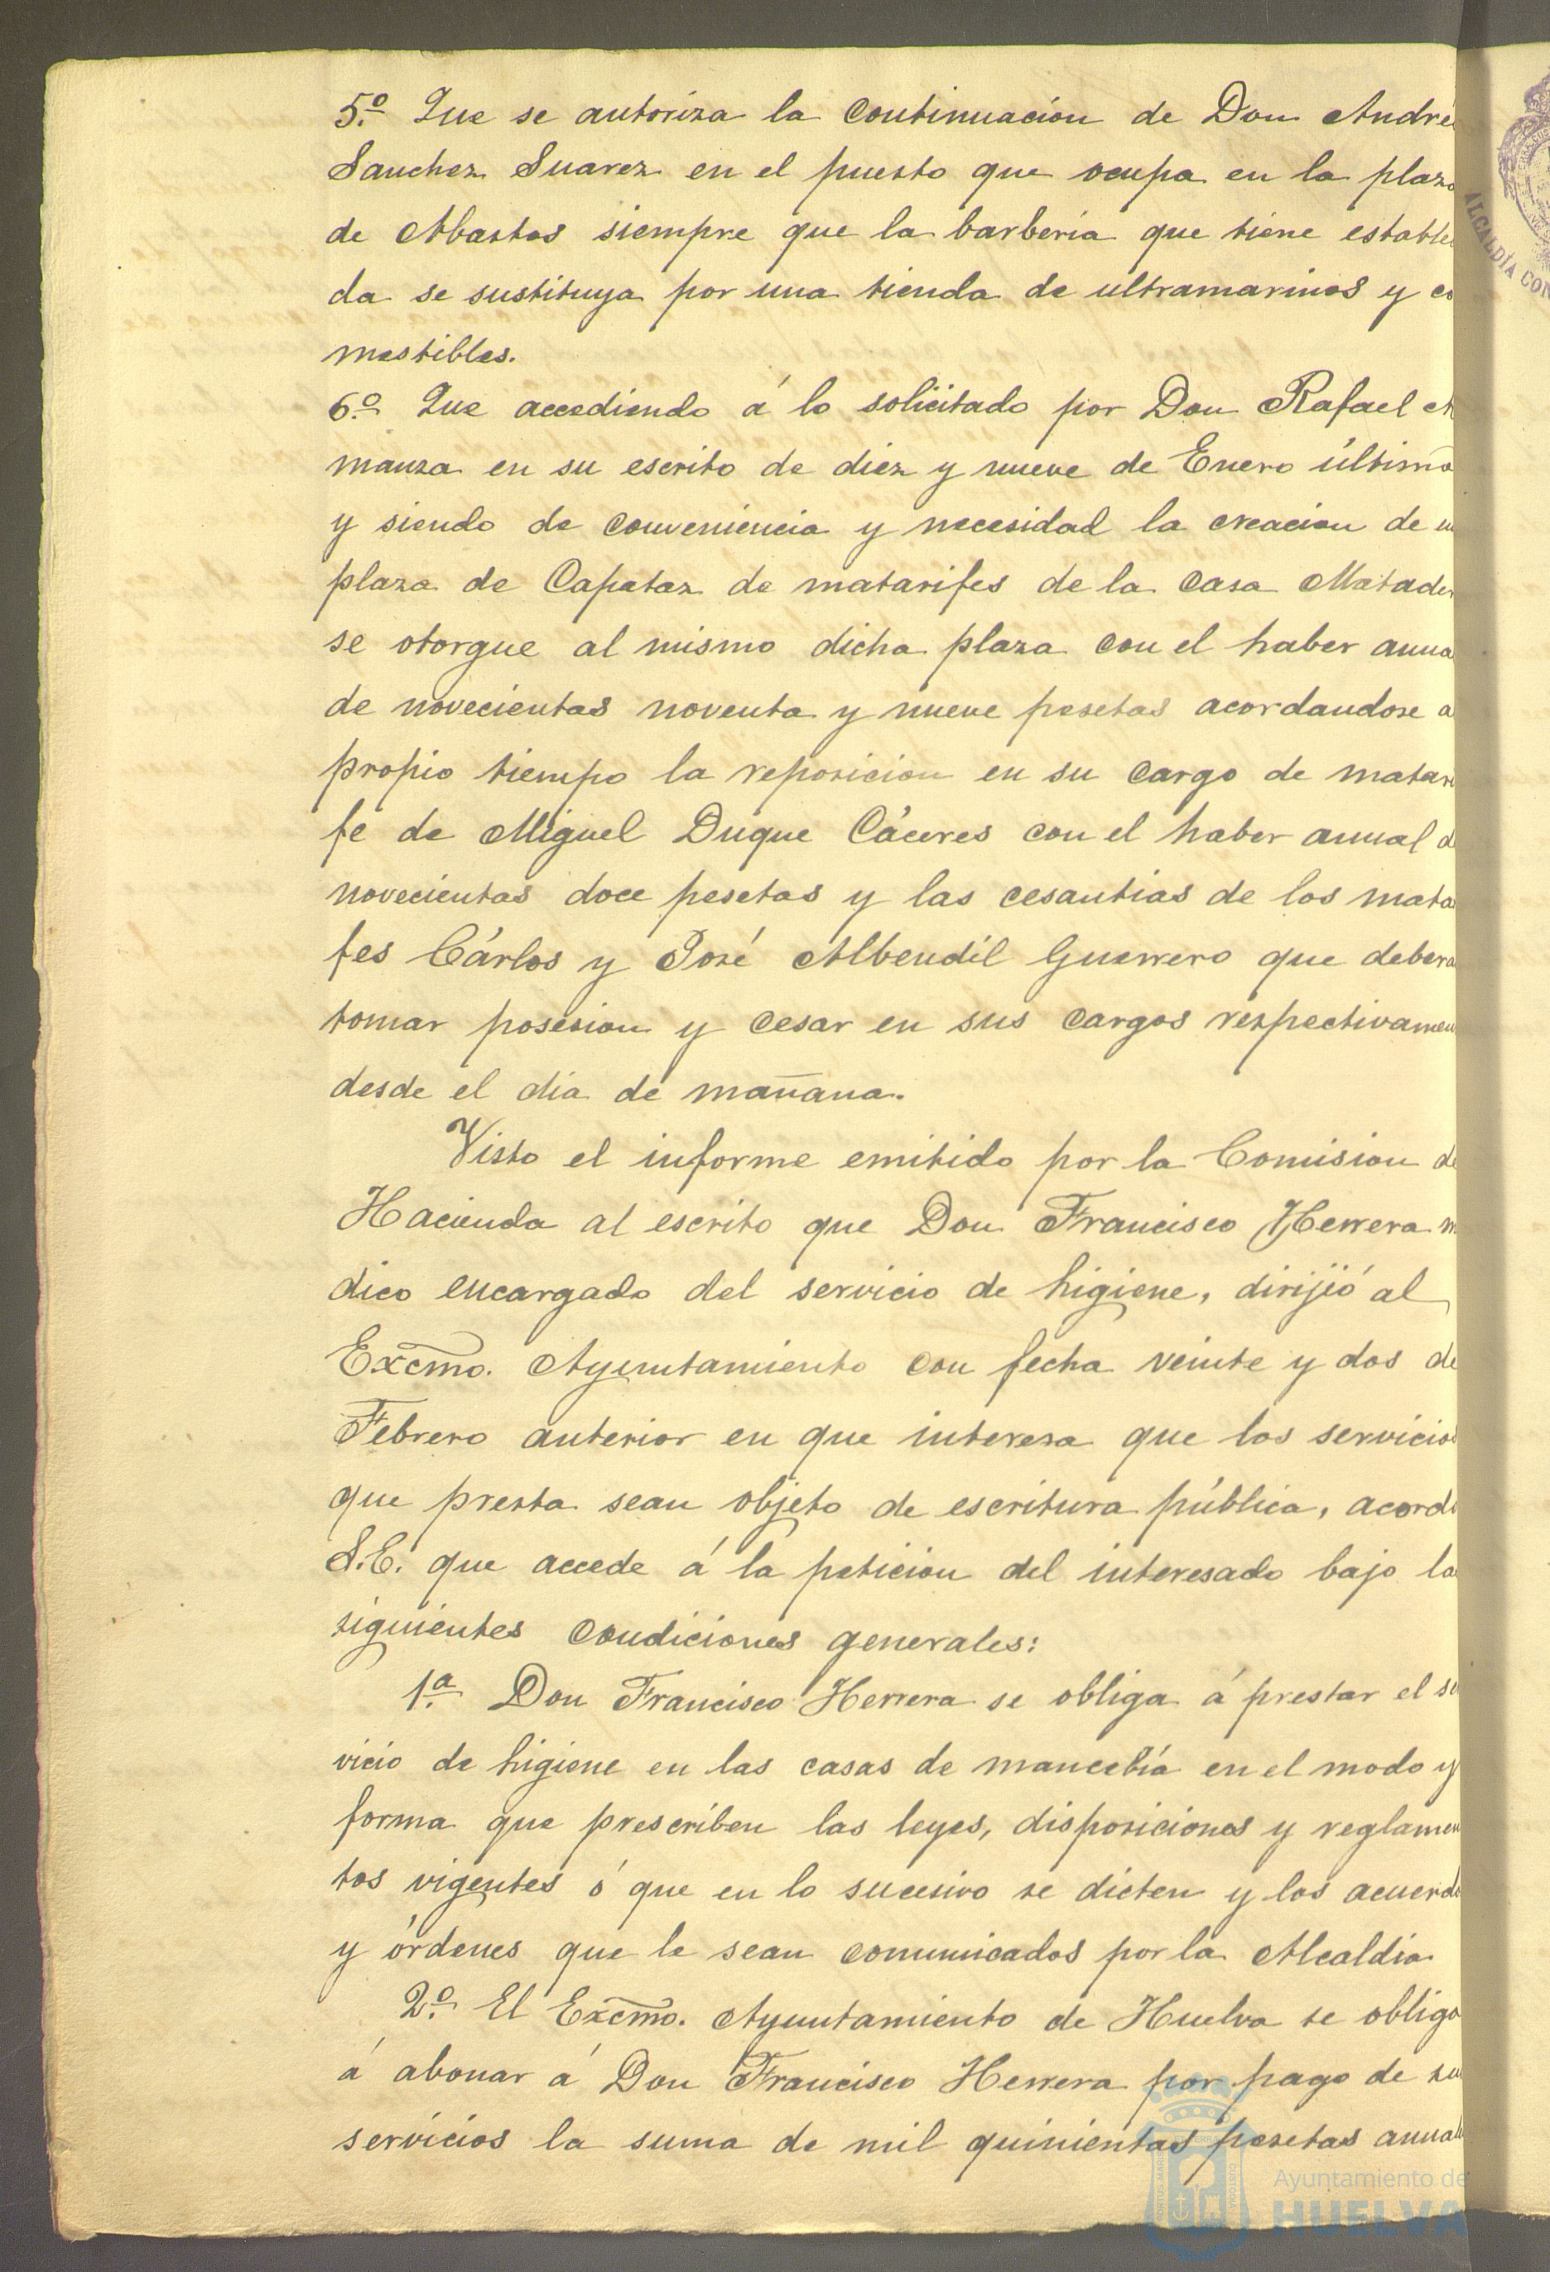 5.º Que se autoriza la continuación de Don André
Sanchez Suarez en el puesto que ocupa en la plaza
de Abastos siempre que la barberia que tiene estable
da se sustituya por una tienda de ultramarinos y co
mestibles.
6.º Que accediendo á lo solicitado por Don Rafael Al
manza en su escrito de diez y nueve de Enero último
y siendo de conveniencia y necesidad la creacion de u
plaza de Capataz de matarifes de la Casa Matader
se otorgue al mismo dicha plaza con el haber anua
de novecientas noventa y nueve pesetas acordandose a
propio tiempo la reposicion en su cargo de matari
fe de Miguel Duque Cáceres con el haber anual d
novecientas doce pesetas y las cesantias de los mata
fes Cárlos y José Albendil Guerrero que debera
tomar posesion y cesar en sus cargos respectivamen
desde el dia de mañana.
Visto el informe emitido por la Comision de
Hacienda al escrito que Don Francisco Herrera m
dico encargado del servicio de higiene, dirijió al
Excmo. Ayuntamiento con fecha veinte y dos de
Febrero anterior en que interesa que los servicios
que presta sean objeto de escritura pública, acordó
S.E. que accede á la peticion del interesado bajo la
siguientes condiciones generales:
1.ª Don Francisco Herrera se obliga á prestar el se
vicio de higiene en las casas de mancebía en el modo y
forma que prescriben las leyes, disposiciones y reglamen
tos vigentes ó que en lo sucesivo se dicten y los acuerdo
y órdenes que le sean comunicados por la Alcaldia
2.º El Excmo. Ayuntamiento de Huelva se obliga
á abonar á Don Francisco Herrera por pago de su
servicios la suma de mil quinientas pesetas anuale
ALCALDÍA CON
Ayuntamiento de
HUELVA